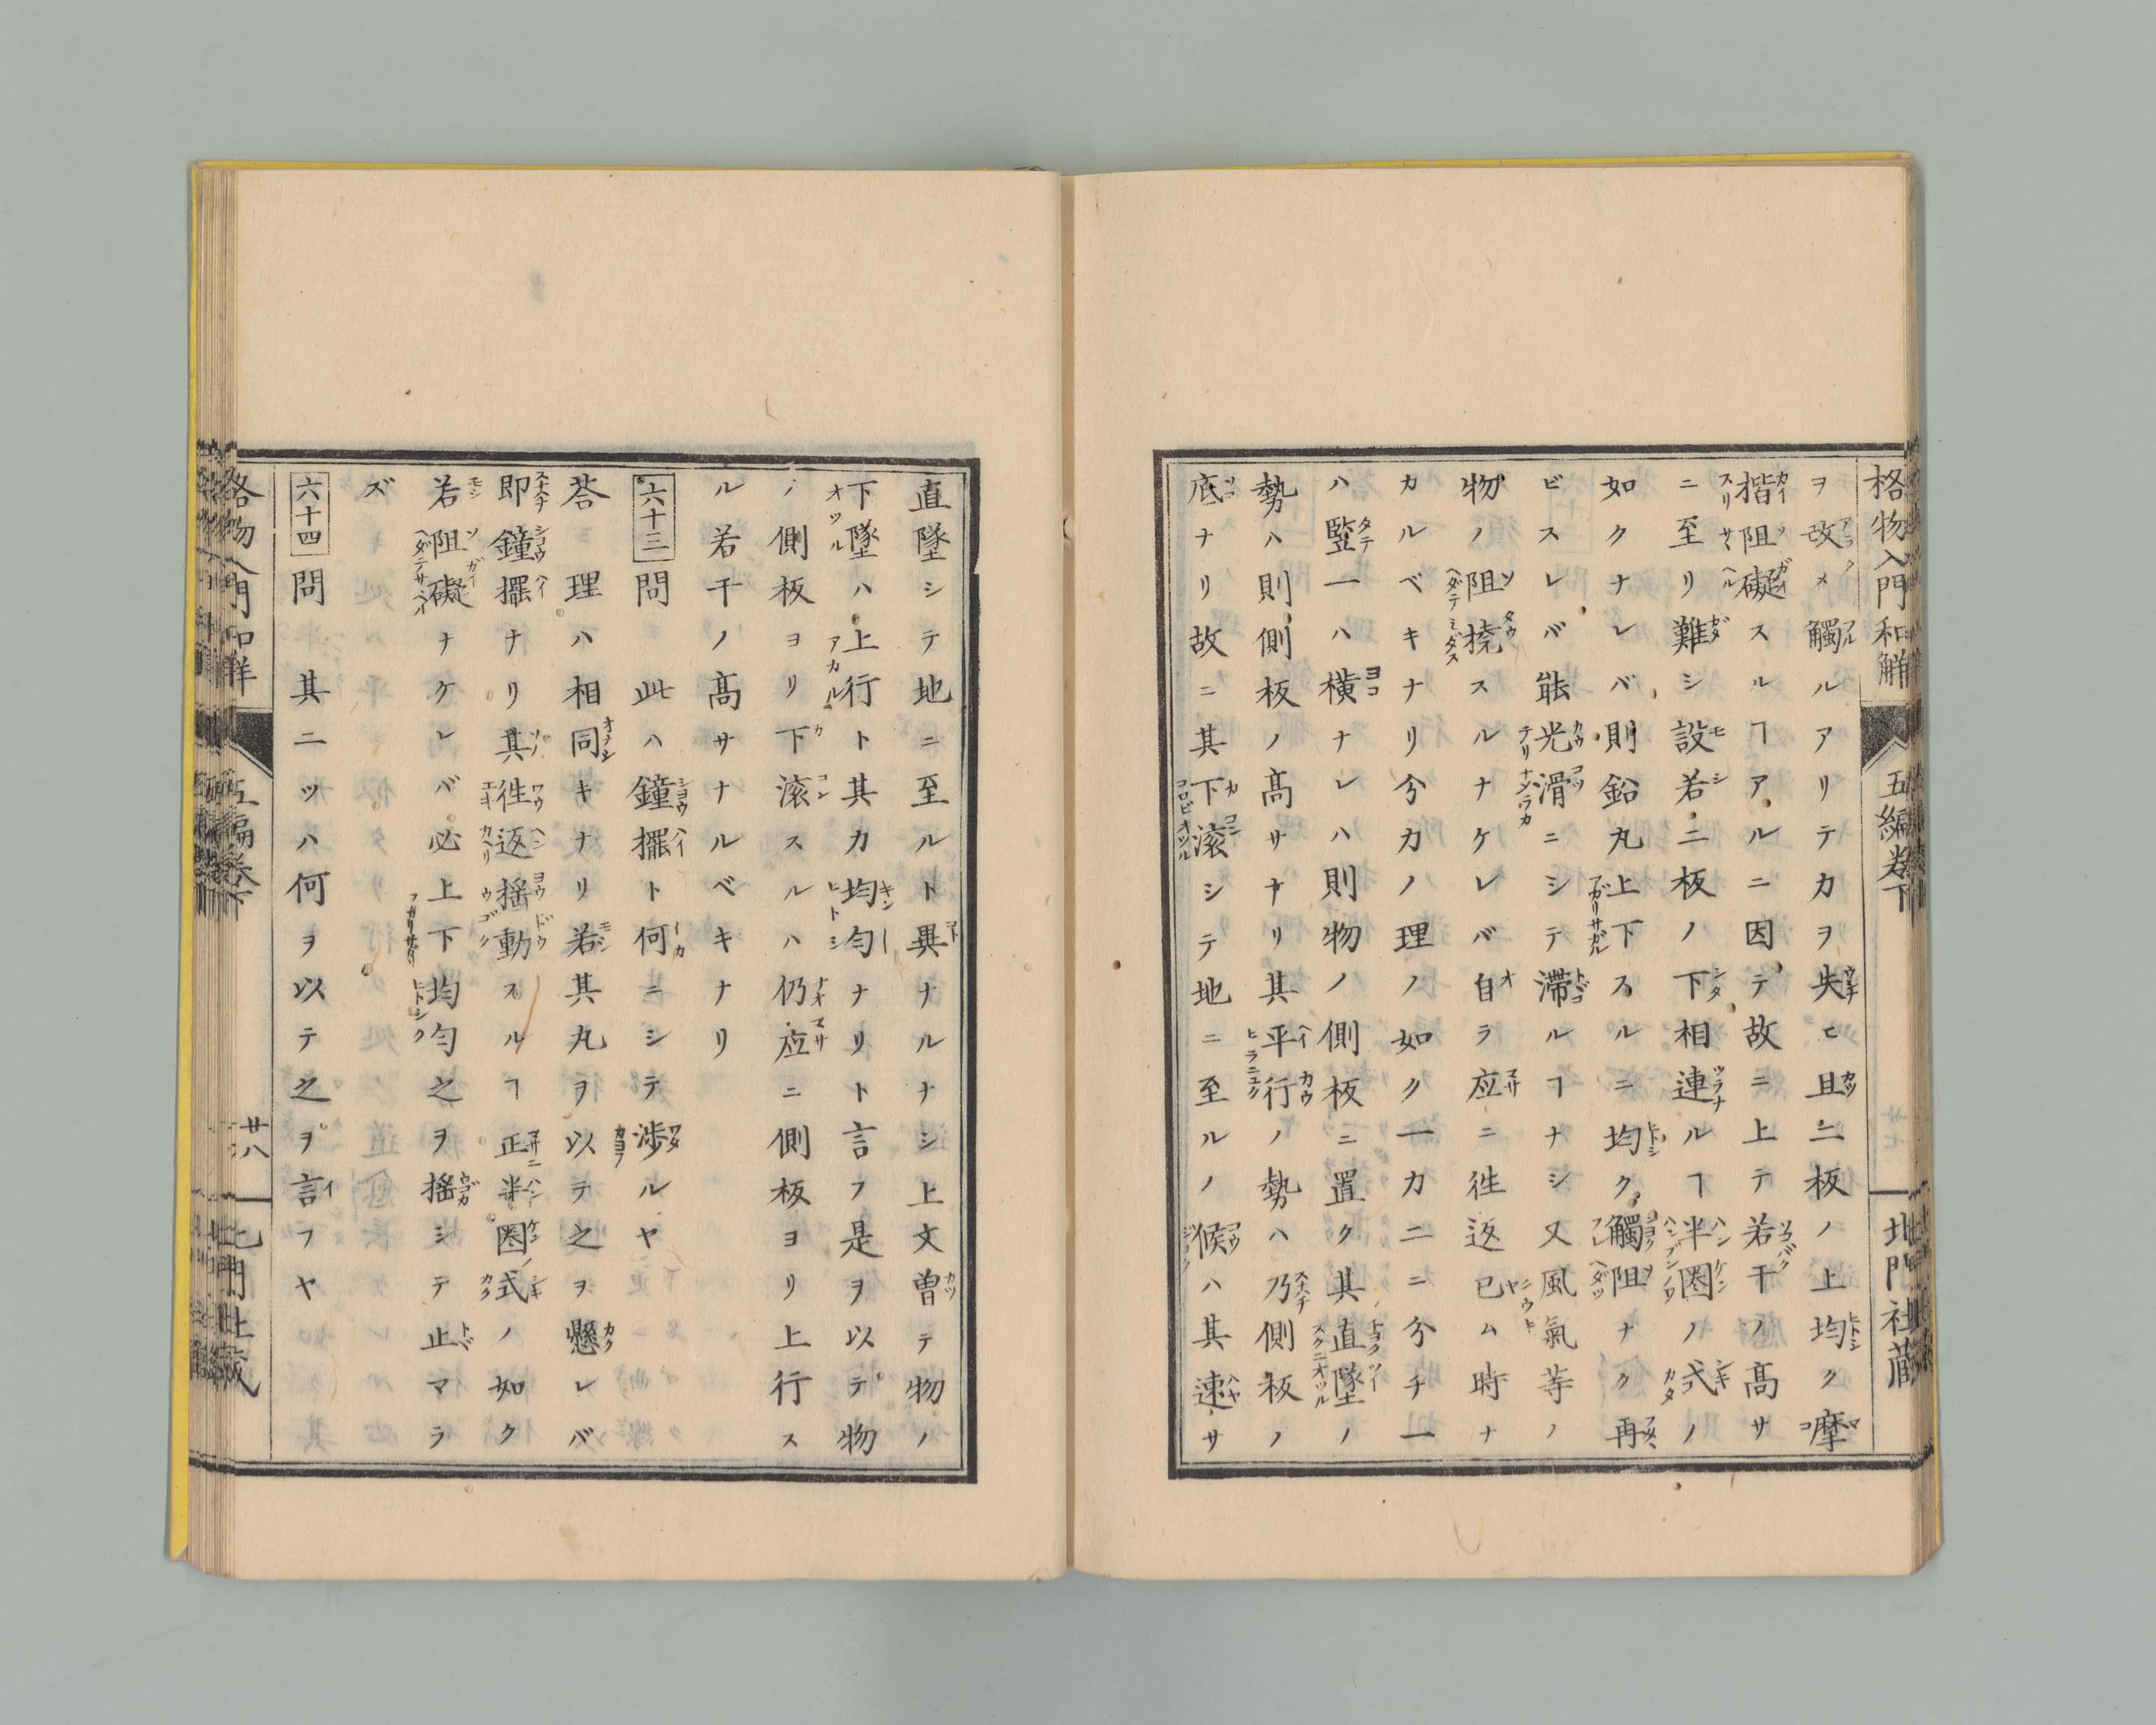 格物入門和解
五編卷下
北門社蔵
ヲ改メ觸ルアリテカヲ失ヒ且二板ノ上均ク摩
揩阻礙スルヿアルニ因テ故ニ上テ若干ノ高サ
ニ至リ難シ設若二板ノ下相連ルヿ半圏ノ式ノ
如クナレバ則鉛丸上下スルニ均ク觸阻ナク再
ビスレバ能光滑ニシテ滞ルヿナシ又風氣等ノ
物ノ阻撓スルナケレバ自ラ应ニ徃返已ム時ナ
カルベキナリ分力ノ理ノ如ク一力二ニ分チ一
ハ竪一ハ横ナレハ則物ノ側板ニ置ク其直墜ノ
勢ハ則側板ノ高サナリ其平行ノ勢ハ乃側板ノ
底ナリ故ニ其下滚シテ地ニ至ルノ候ハ其速サ
直墜シテ地ニ至ルト異ナルナシ上文曽テ物ノ
下墜ハ上行ト其力均匀ナリト言フ是ヲ以テ物
ノ側板ヨリ下滚スルハ仍应ニ側板ヨリ上行ス
ル若干ノ高サナルベキナリ
六十三 問 此ハ鐘擺ト何ニシテ渉ルヤ
荅 理ハ相同キナリ若其丸ヲ以テ之ヲ懸レバ
即鐘擺ナリ其徃返揺動スルヿ正半圏式ノ如ク
若阻礙ナケレバ必上下均匀之ヲ揺シテ止マラ
ズ
六十四 問 其二ツハ何ヲ以テ之ヲ言フヤ
格物入門和解
五編卷下
廿八
北門社蔵